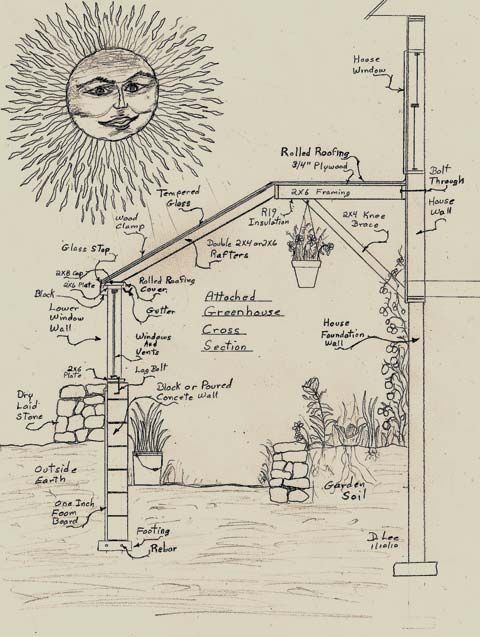 House
Window
Rolled Roofing
3/4" Plywood
Bolt
Through
House
Wall
2x6 Framing
Tempered
Glass
Wood
Clamp
R19
Insulation
2x4 Knee
Brace
Double 2x4 or 2x6
Rafters
Glass Stop
2x8 Cap
2x6 Plate
Block
Rolled Roofing
Cover
Gutter
Lower
Window
Wall
Attached
Greenhouse
Cross
Section
House
Foundation
Wall
Windows
And
Vents
2x6
Plate
Lag Bolt
Block or Poured
Concrete Wall
Dry
Laid
Stone
Outside
Earth
Garden
Soil
One Inch
Foam
Board
Footing
Rebar
D. Lee
1/10/10